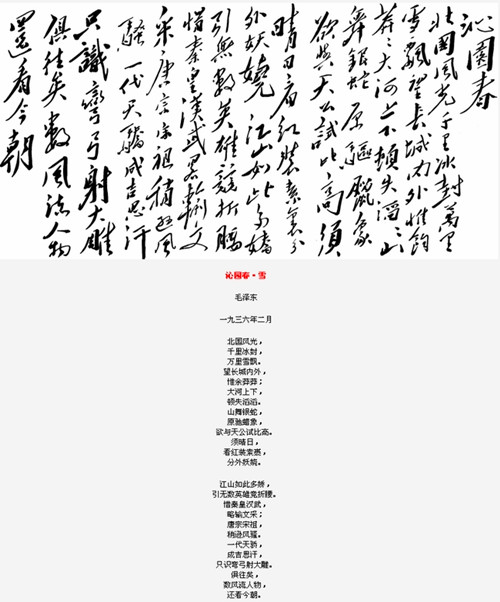 沁園春
北國風光千里冰封萬里
雪飄望長城内外惟餘
莽々大河上下頓失滔々山
舞銀蛇原驅臘象
欲與天公試比高須
晴日看紅裝素裹分
外妖嬈江山如此多嬌
引無數英雄競折腰
惜秦皇漢武略輸文
采唐宗宋祖稍遜風
騷一代天驕成吉思汗
只識彎弓射大雕
俱往矣數風流人物
還看今朝
沁园春·雪
毛泽东
一九三六年二月
北国风光，
千里冰封，
万里雪飘。
望长城内外，
惟余莽莽；
大河上下，
顿失滔滔。
山舞银蛇，
原驰蜡象，
欲与天公试比高。
须晴日，
看红装素裹，
分外妖娆。
江山如此多娇，
引无数英雄竞折腰。
惜秦皇汉武，
略输文采；
唐宗宋祖，
稍逊风骚。
一代天骄，
成吉思汗，
只识弯弓射大雕。
俱往矣，
数风流人物，
还看今朝。